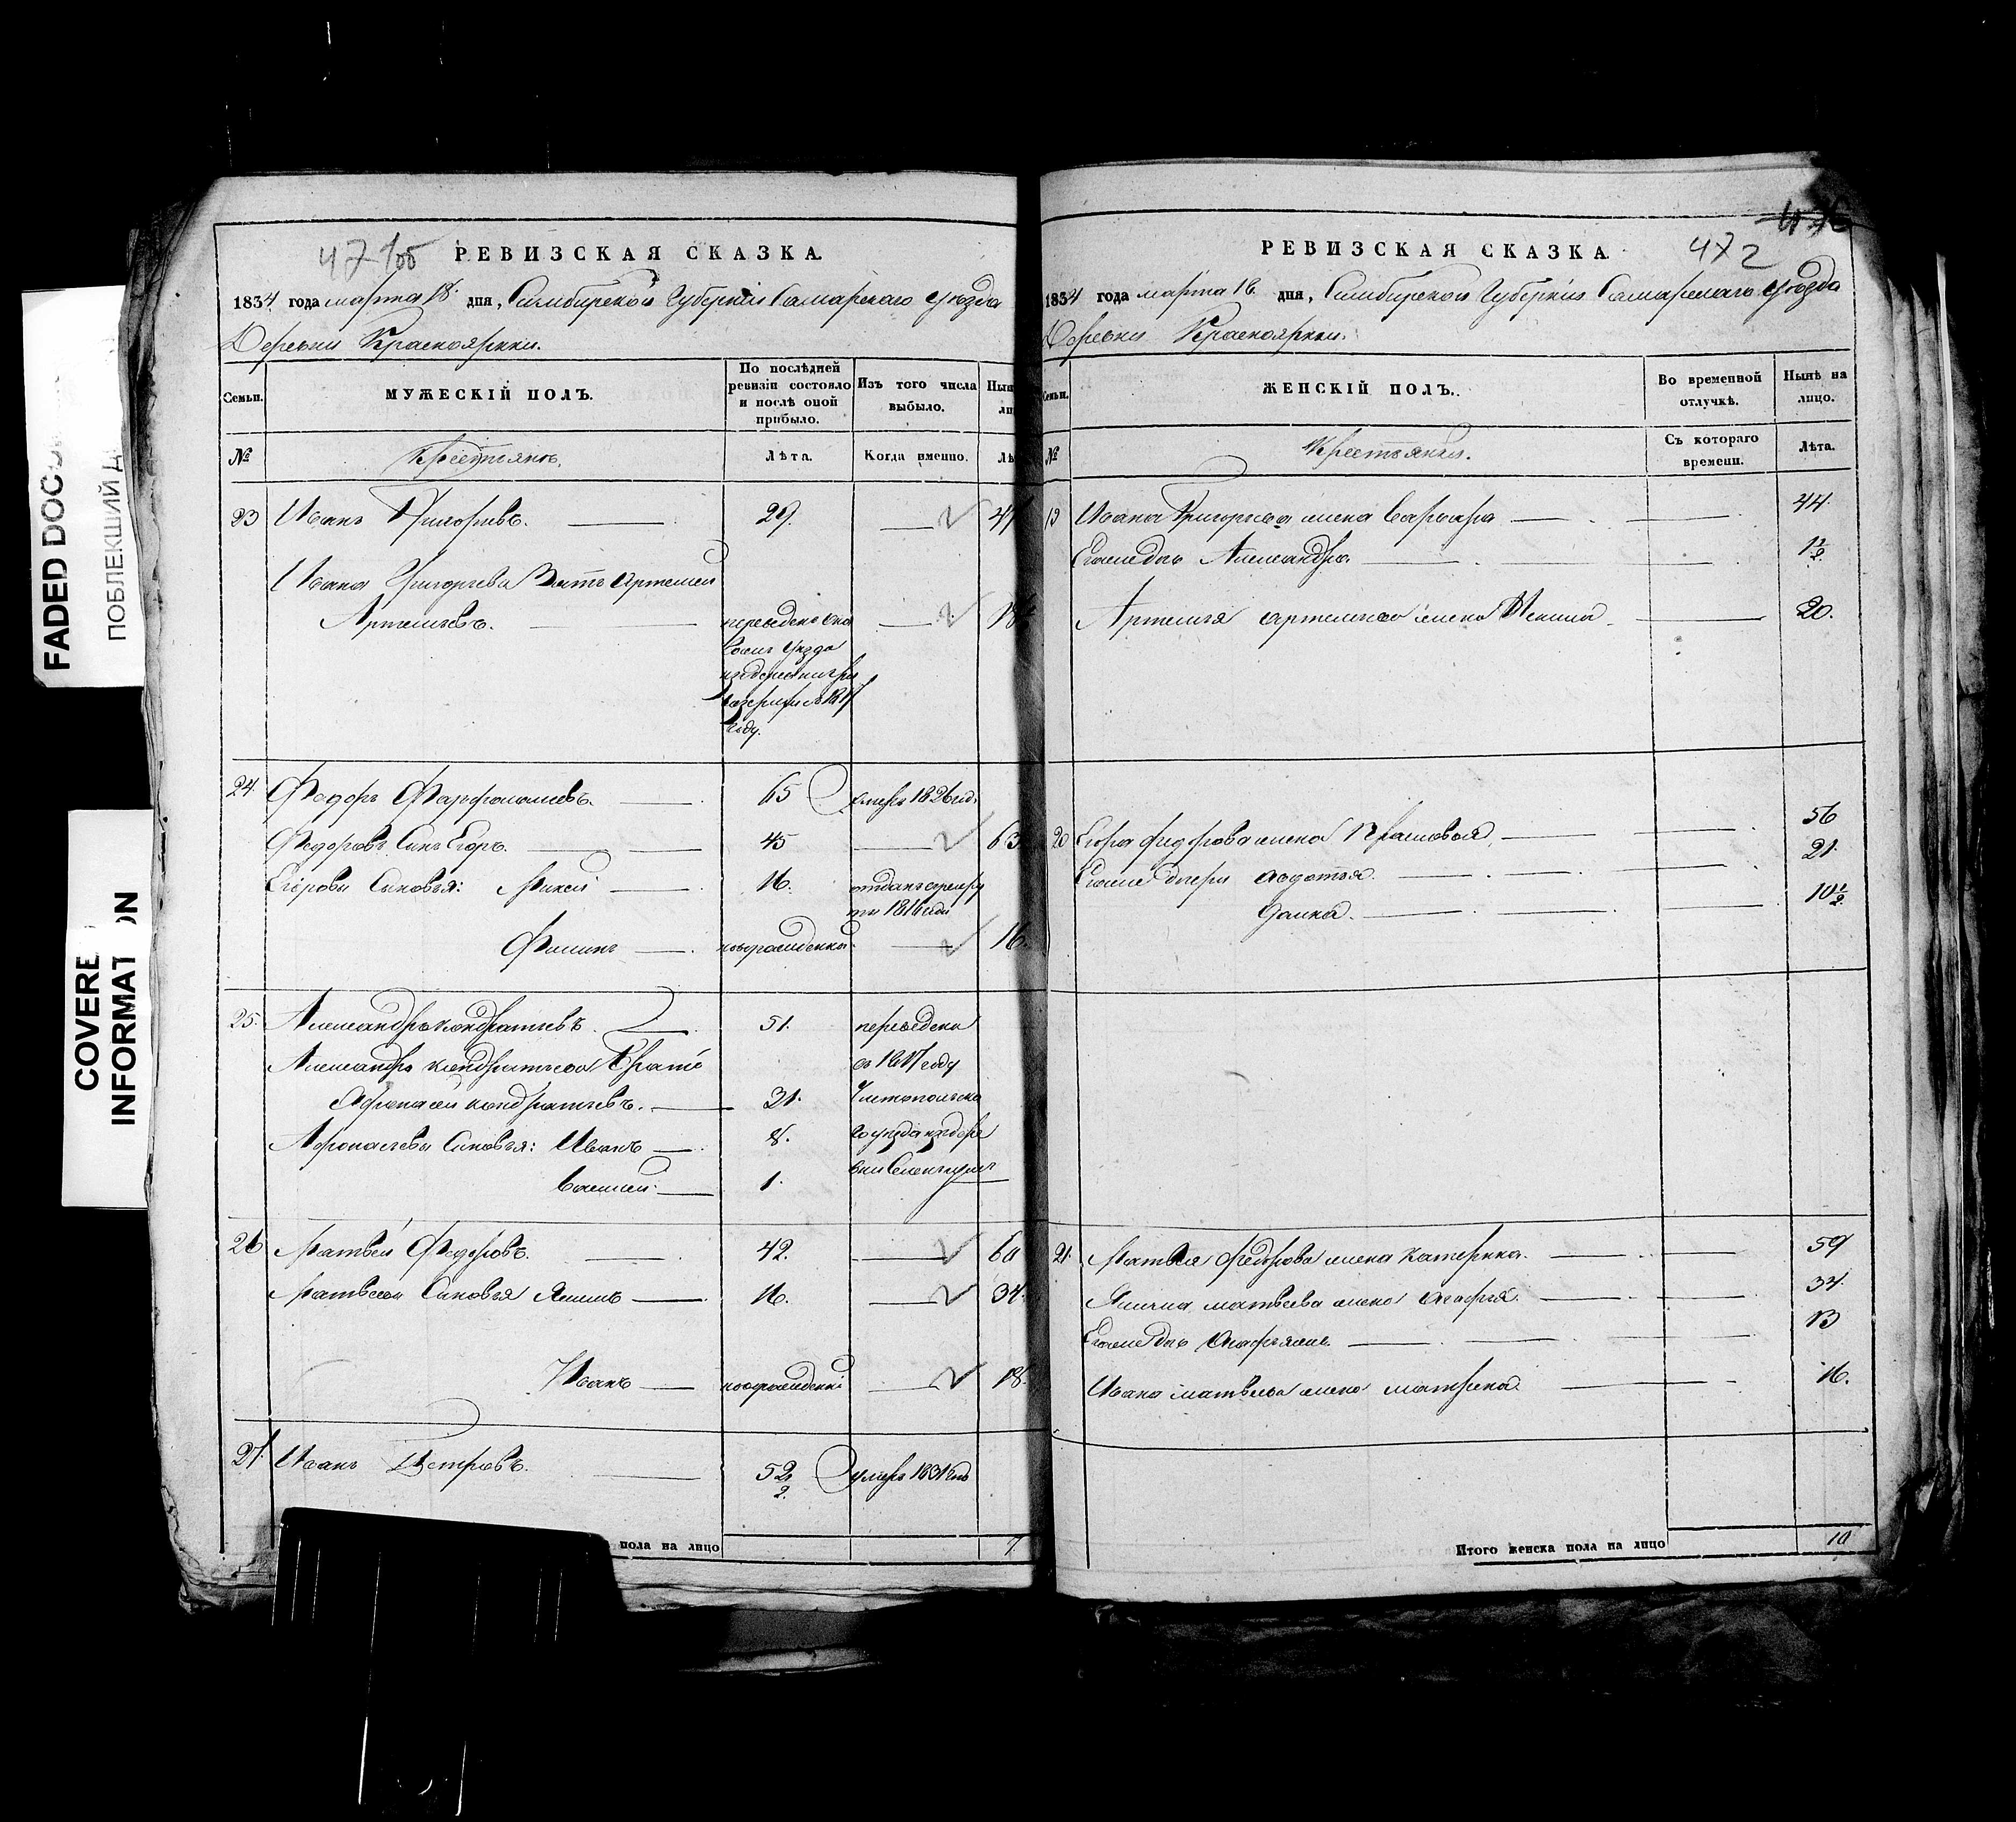 FADED DOCU
ПОБЛЕКШИЙ Д
COVERE
INFORMAT ON
РЕВИЗСКАЯ СКАЗКА.
1834 года марта 18 дня, Симбирской Губерніи Самарскаго уѣзда
Деревни Красноярки.
Семьи.
МУЖЕСКІЙ ПОЛЪ.
По послѣдней ревизіи состояло и послѣ оной прибыло.
Изъ того числа выбыло.
№
Крестьянъ.
Лѣта.
Когда именно.
23 Иванъ Григорьевъ. 29. 47
Ивана Григорьева Зять Артемей
Артемьевъ. переведенъ
уѣзда
году.
24. Федоръ 65 умеръ 1826 год.
Федоровъ Сынъ Егоръ. 45 63
Егоровы Сыновья: 16. отданъ в рекру
ты 1816 году
Филипъ новорожденный 16.
25. Александръ Кондратьевъ. 51. переведены
Александра Кондратьева Братъ в 1817 году
Афонасей Кондратьевъ. 31. Чистопольска
Афонасьевы Сыновья: Иванъ 8. го уѣзда в дере
Василей 1. вни
26 Матвей Федоровъ. 42. 60
Матвеевы Сыновья Якимъ 16. 34.
Иванъ новорожденный 18.
27. Иванъ Петровъ. 52 1/2. умеръ 1831 год
пола на лицо 7
472
РЕВИЗСКАЯ СКАЗКА.
1834 года марта 18 дня, Симбирской Губерніи Самарскаго уѣзда
Деревни Красноярки.
ЖЕНСКІЙ ПОЛЪ.
Во временной отлучкѣ.
Нынѣ на лицо.
№
Крестьянки.
Съ котораго времени.
Лѣта.
Ивана Григорьева жена Варвара 44.
Егоже дочь Александра 1 1/2
Артемья Артемьева жена 20.
20 Егора Федорова жена Прасковья 56
Егоже дочери Авдотья 21.
10 1/2
21. Матвея Федорова жена Катерина. 59
Якима Матвеева жена Агафья. 34
Егоже дочь 13
Ивана Матвеева жена Матрена 16.
Итого женска пола на лицо 10